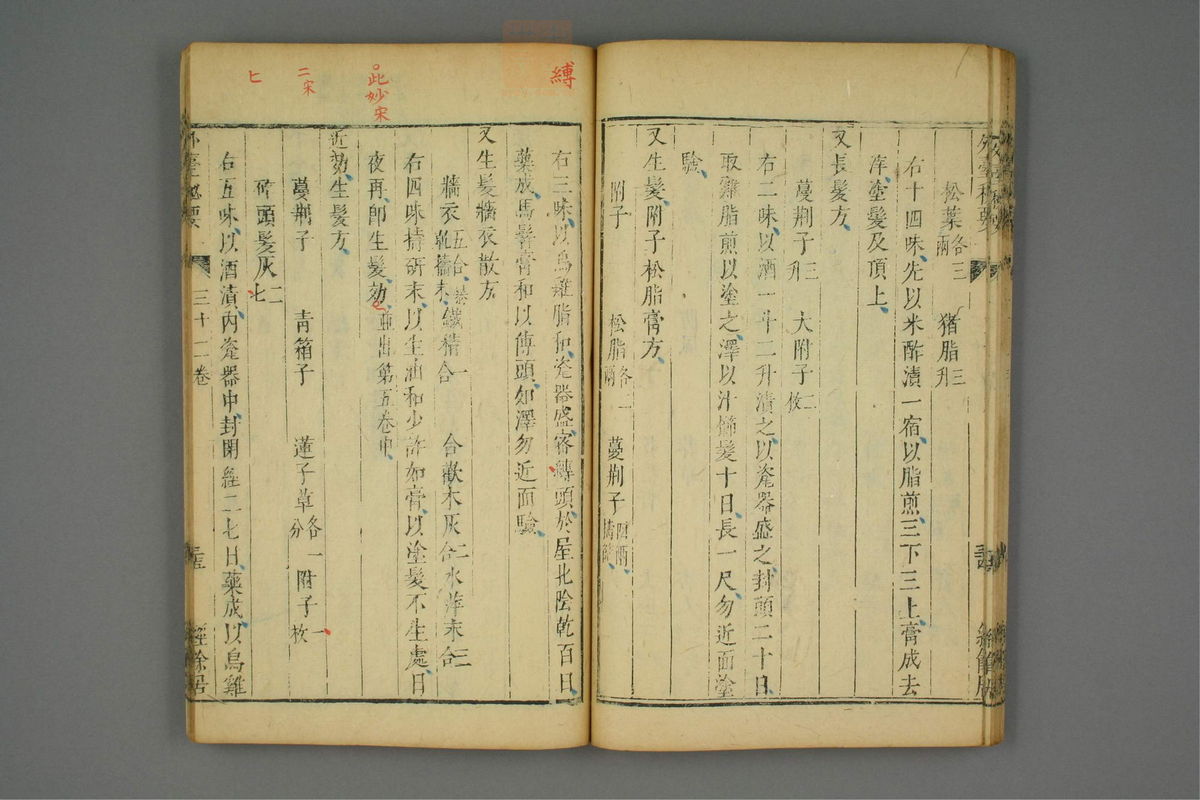 松葉各三兩　猪脂三升
右十四味先以米酢漬一宿以脂煎三下三上膏成去
滓塗髮及頂上
又長髮方
蔓荆子三升　大附子二枚
右二味以酒一斗二升漬之以瓷器盛之封頭二十日
取雞脂煎以塗之澤以汁櫛髮十日長一尺勿近面塗
驗
又生髮附子松脂膏方
附子　松脂各二兩　蔓荆子四兩擣篩
右三味以烏雞脂和瓷器盛密縛頭於屋北陰乾百日
藥成馬鬐膏和以傅頭如澤勿近面驗
又生髮牆衣散方
牆衣五合
鐵精一合　合歡木灰二合　水萍末三合
右四味持研末以生油和少許如膏以塗髮不生處日
夜再即生髮効並出第五卷中
近効生髮方
蔓荆子　青箱子　蓮子草各一分　附子一枚
碎頭髮灰二七
右五味以酒漬內瓷器中封閉經二七日藥成以烏雞
外臺秘要　三十二卷　經餘居
縛
此妙宋
二宋
匕